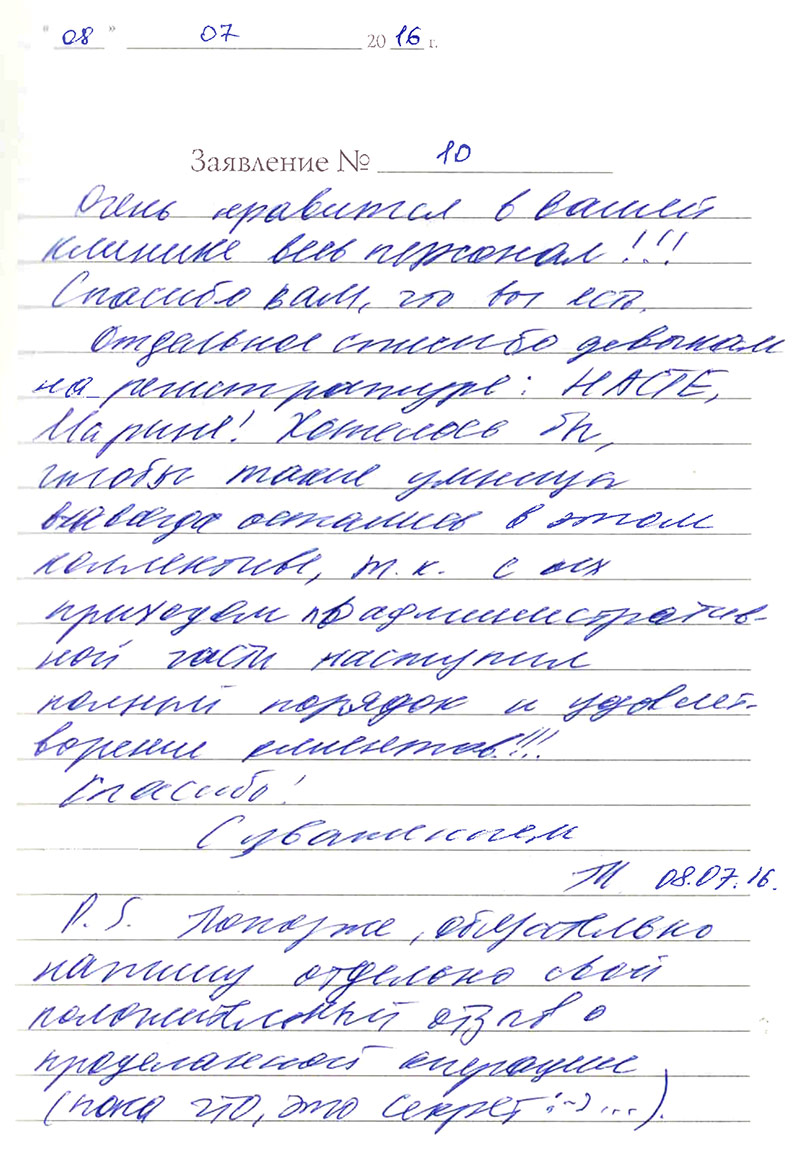 "08" 07 2016 г.
Заявление № 10
Очень нравится в вашей
клинике весь персонал!!!
Спасибо вам, что вы есть.
Отдельное спасибо девочкам
на регистратуре: НАСТЕ,
Марине! Хотелось бы,
чтобы такие умницы
навсегда остались в этом
коллективе, т.к. с их
приходом по административ-
ной части наступил
полный порядок и удовлет-
ворение клиентов!!!
Спасибо!
С уважением
08.07.16.
P.S. Попозже, обязательно
напишу отдельно свой
положительный отзыв о
проделанной операции
(пока что, это секрет :-) ...).